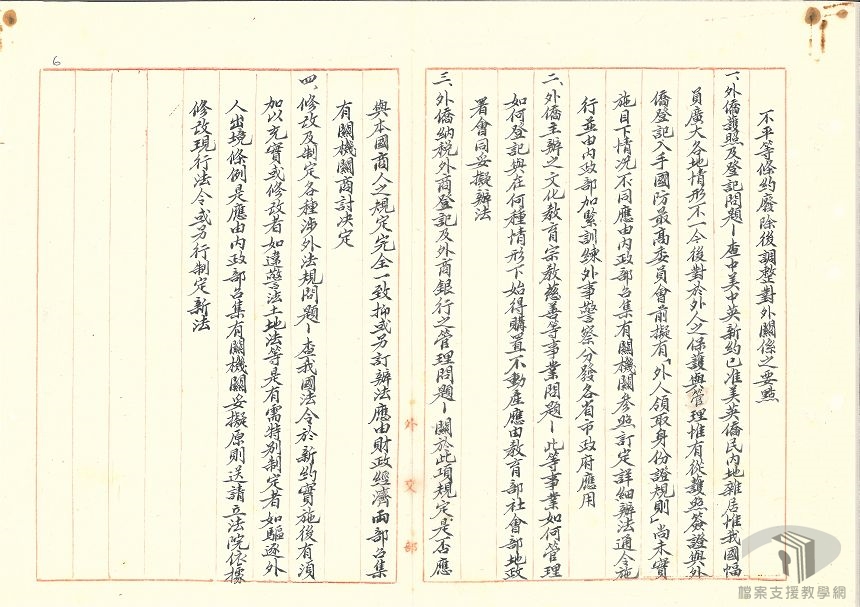 不平等條約廢除後調整對外關係之要點
一、外僑護照及登記問題－查中美中英新約已准美英僑民內地雜居惟我國幅
員廣大各地情形不一今後對於外人之保護與管理惟有從護照簽證與外
僑登記入手國防最高委員會前擬有「外人領取身份證規則」尚未實
施目下情況不同應由內政部召集有關機關參照訂定詳細辦法通令施
行並由內政部加緊訓練外事警察分發各省市政府應用
二、外僑主辦之文化教育宗教慈善等事業問題－此等事業如何管理
如何登記與在何種情形下始得購置不動產應由教育部社會部地政
署會同妥擬辦法
三、外僑納稅外商登記及外商銀行之管理問題－關於此項規定是否應
與本國商人之規定完全一致抑或另訂辦法應由財政經濟兩部召集
有關機關商討决定
四、修改及制定各種涉外法規問題－查我國法令於新約實施後有須
加以充實或修改者如違警法土地法等是有需特別制定者如驅逐外
人出境條例是應由內政部召集有關機關妥擬原則送請立法院依據
修改現行法令或另行制定新法
外交部
6
檔案支援教學網